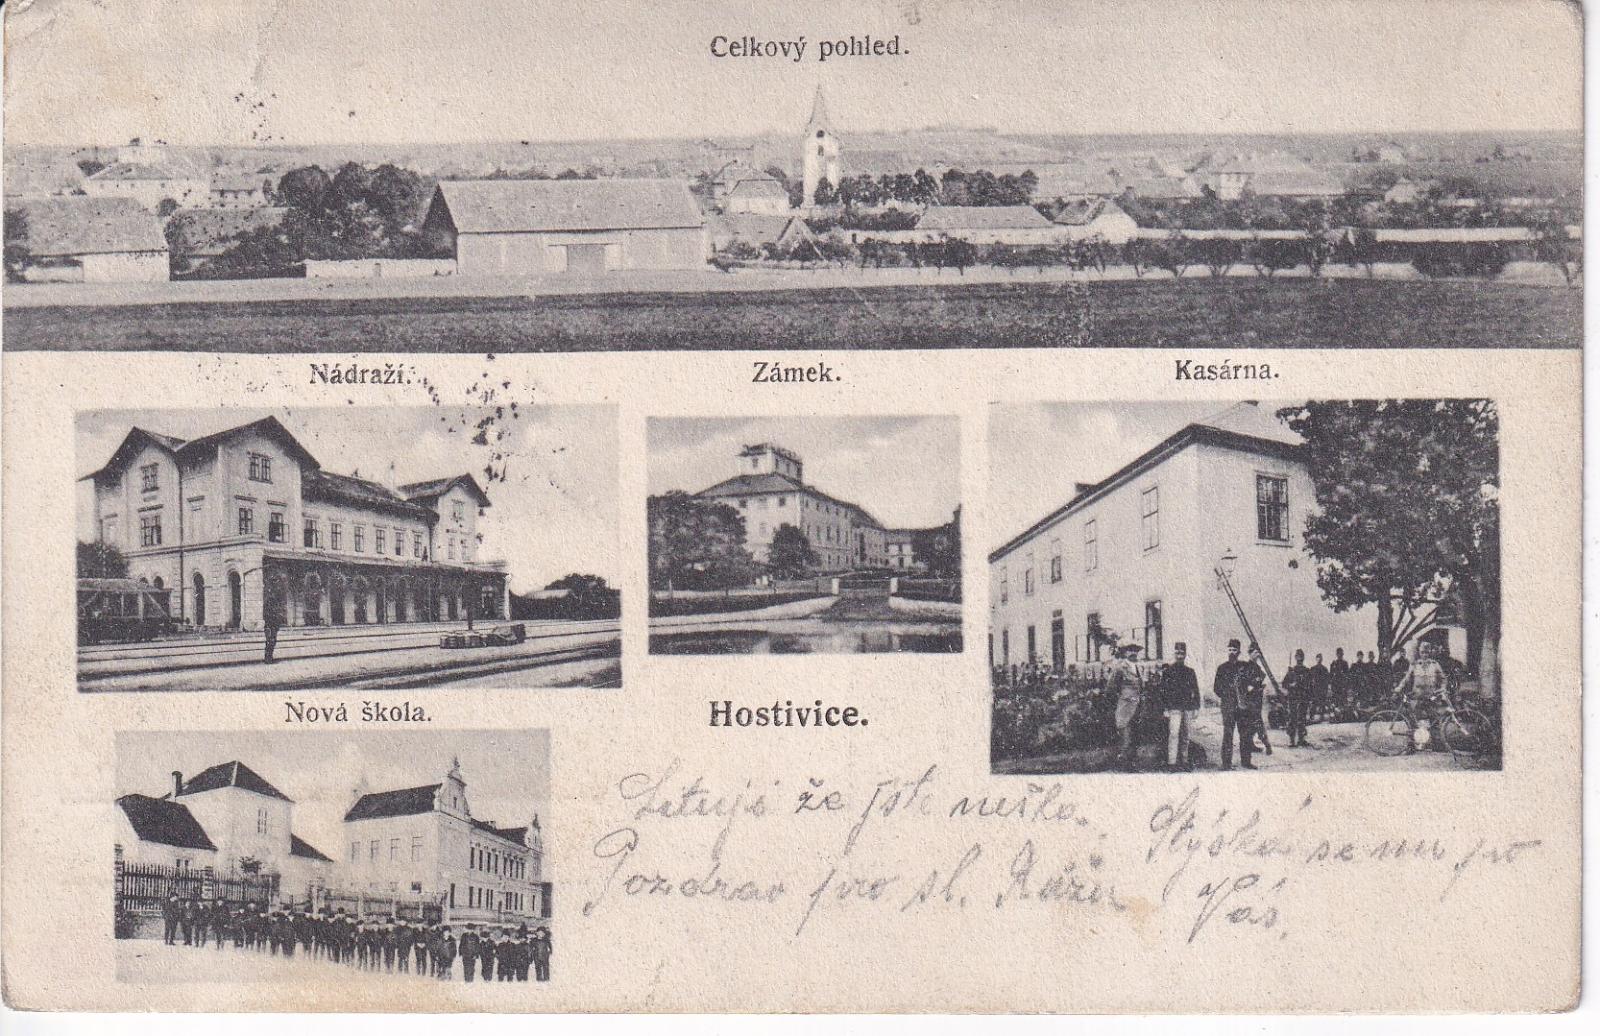 Celkový pohled.
Nádraží.
Zámek.
Kasárna.
Nová škola.
Hostivice.
Lituji že jste
Stýská se mu po
Pozdrav pro sl. Růžu
Vás.